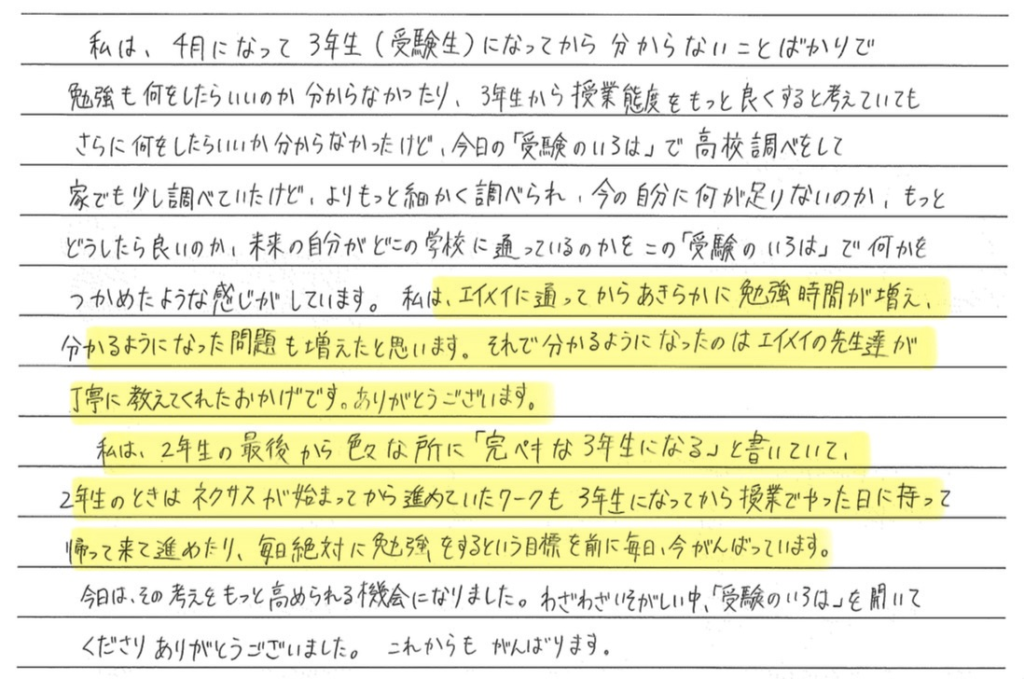 私は、4月になって3年生(受験生)になってから分からないことばかりで
勉強も何をしたらいいのか分からなかったり、3年生から授業態度をもっと良くすると考えていても
さらに何をしたらいいか分からなかったけど、今日の「受験のいろは」で高校調べをして
家でも少し調べていたけど、よりもっと細かく調べられ、今の自分に何が足りないのか、もっと
どうしたら良いのか、未来の自分がどこの学校に通っているのかをこの「受験のいろは」で何かを
つかめたような感じがしています。私は、エイメイに通ってからあきらかに勉強時間が増え、
分かるようになった問題も増えたと思います。それで分かるようになったのはエイメイの先生達が
丁寧に教えてくれたおかげです。ありがとうございます。
私は、2年生の最後から色々な所に「完ペキな3年生になる」と書いていて、
2年生のときはネクサスが始まってから進めていたワークも3年生になってから授業でやった日に持って
帰って来て進めたり、毎日絶対に勉強をするという目標を前に毎日、今がんばっています。
今日は、その考えをもっと高められる機会になりました。わざわざいそがしい中、「受験のいろは」を開いて
くださりありがとうございました。これからもがんばります。